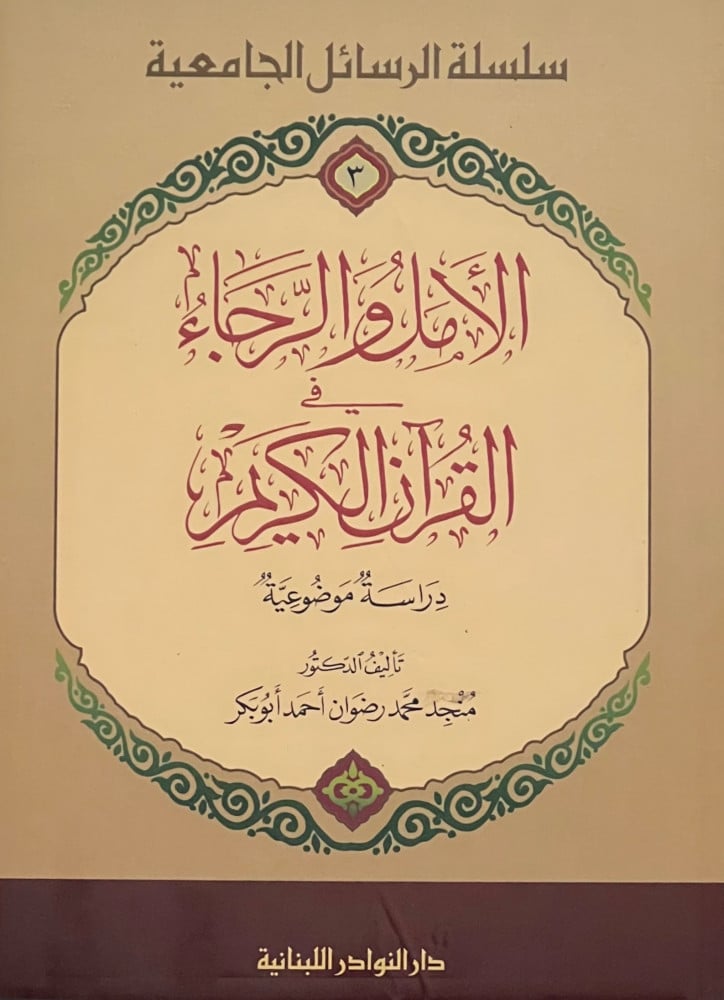 سلسلة الرسائل الجامعية
٣
الأَمَلُ وَالرَّجَاءُ
في
القُرْآنِ الكَرِيمِ
دِرَاسَةٌ مَوْضُوعِيَّةٌ
تَأْلِيفُ الدّكتُور
مُنْجِد محمَّد رضوَان أحمَد أبُوبَكر
دار النوادر اللبنانية